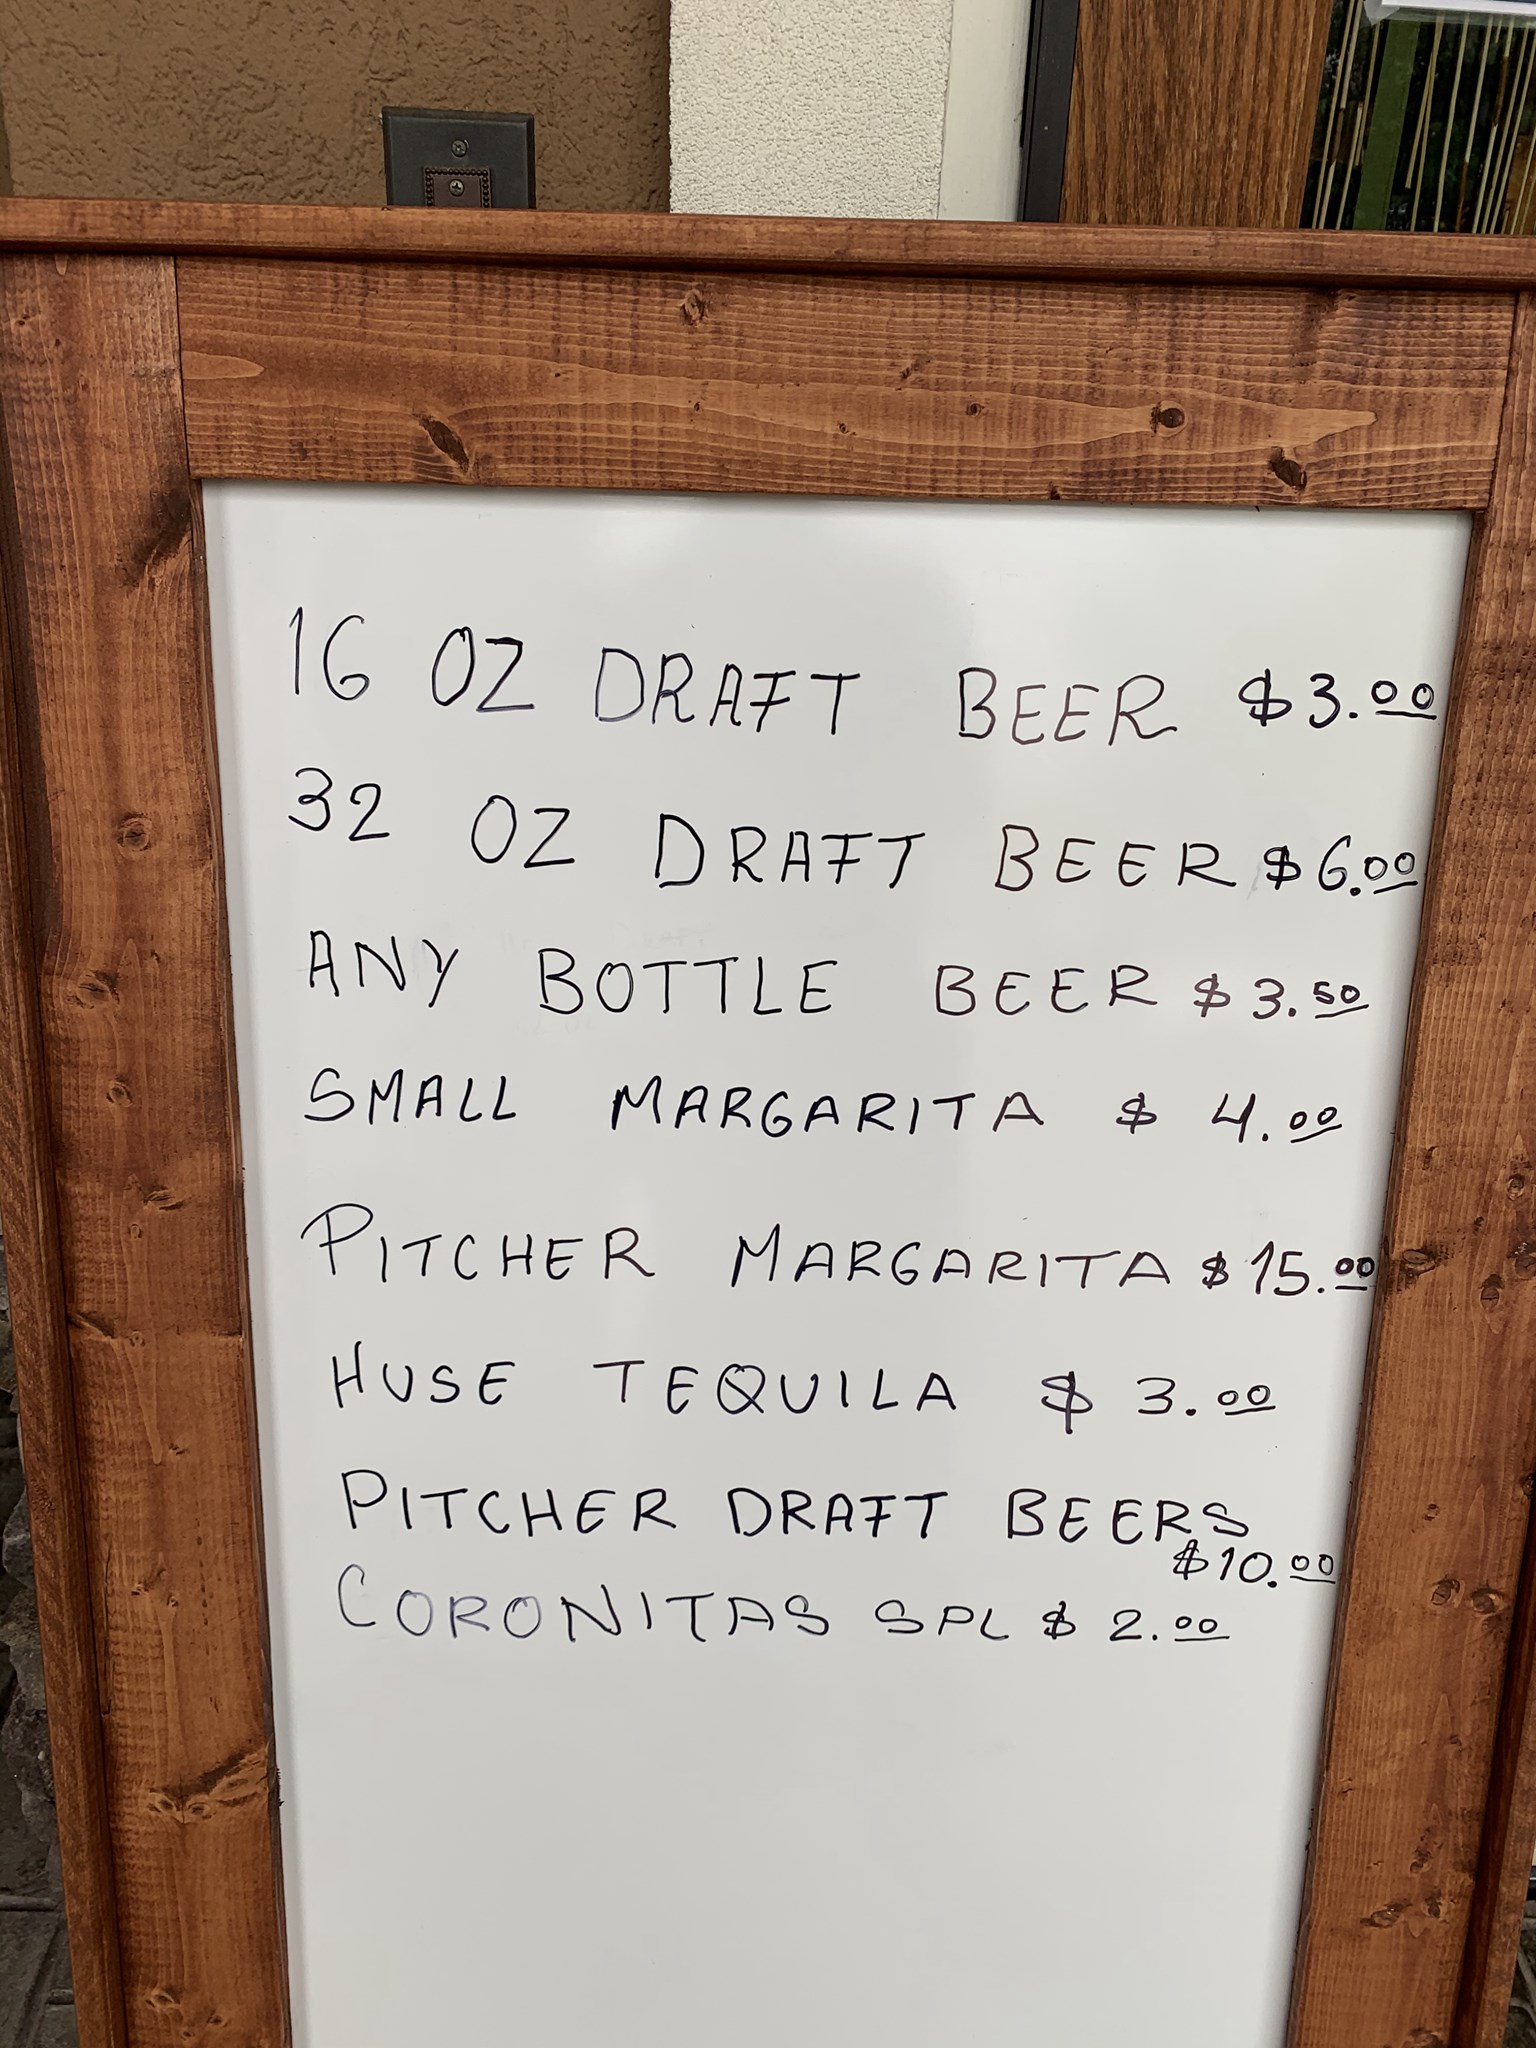 16 OZ DRAFT BEER $3.00
32 OZ DRAFT BEER $6.00
ANY BOTTLE BEER $3.50
SMALL MARGARITA $ 4.00
PITCHER MARGARITA $15.00
HUSE TEQUILA $ 3.00
PITCHER DRAFT BEERS
$10.00
CORONITAS SPL $ 2.00